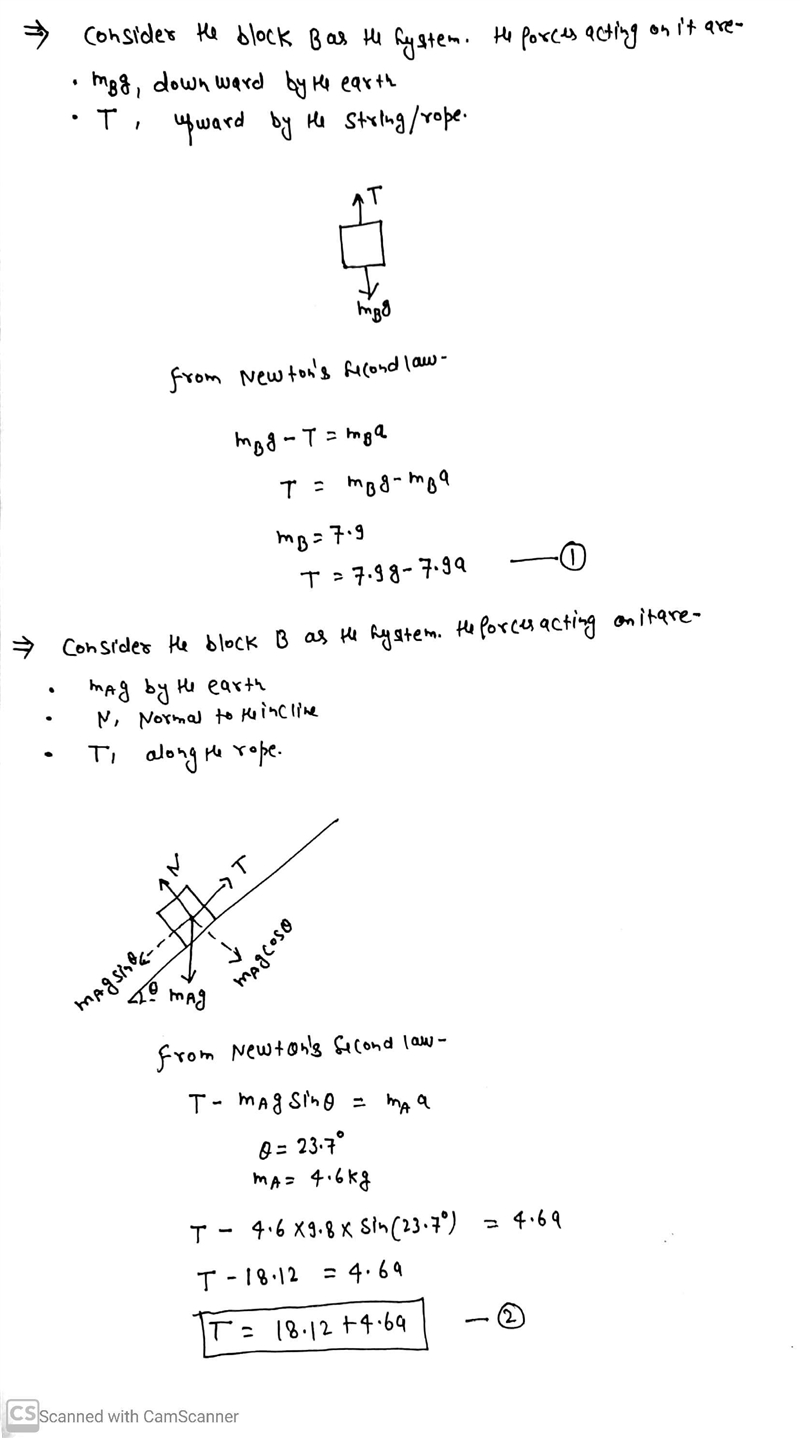 ⇒ Consider the block B as the system. The forces acting on it are-
• mBg, downward by the earth
• T, upward by the string/rope.
T
mBg
from Newton's second law-
mBg - T = mBa
T = mBg - mBa
mB = 7.9
T = 7.9g - 7.9a —①
⇒ Consider the block B as the system. The forces acting on it are-
• mAg by the earth
• N, Normal to the incline
• T, along the rope.
N
T
mAg sinθ
θ
mAg
mAg cosθ
from Newton's second law-
T - mAg sinθ = mA a
θ = 23.7°
mA = 4.6kg
T - 4.6 x9.8 x sin(23.7°) = 4.6a
T - 18.12 = 4.6a
T = 18.12 + 4.6a —②
CS Scanned with CamScanner